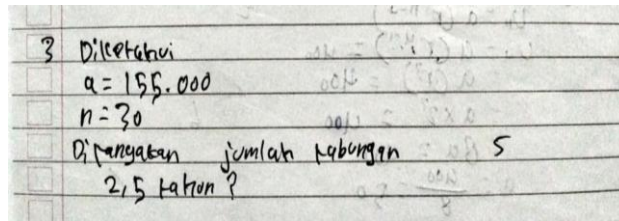 3 Diketahui
a = 155.000
n = 30
Ditanyakan jumlah tabungan 5
2,5 tahun ?